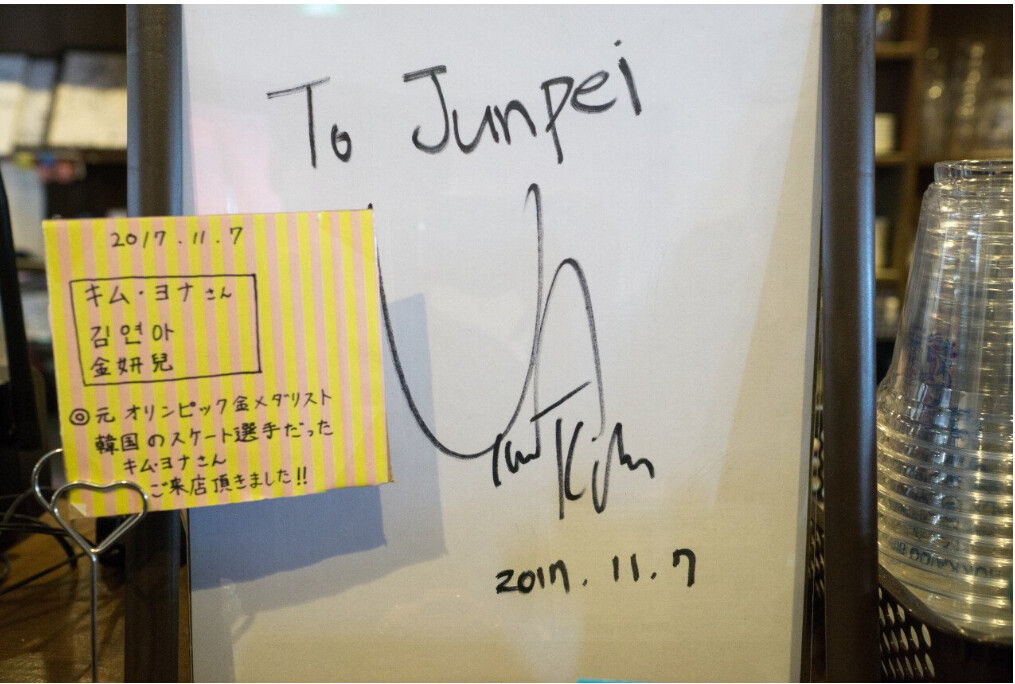 To Junpei
Yuna Kim
2017.11.7
2017.11.7
キム・ヨナさん
김연아
金妍兒
◎元オリンピック金メダリスト
韓国のスケート選手だった
キム・ヨナさん
ご来店頂きました!!